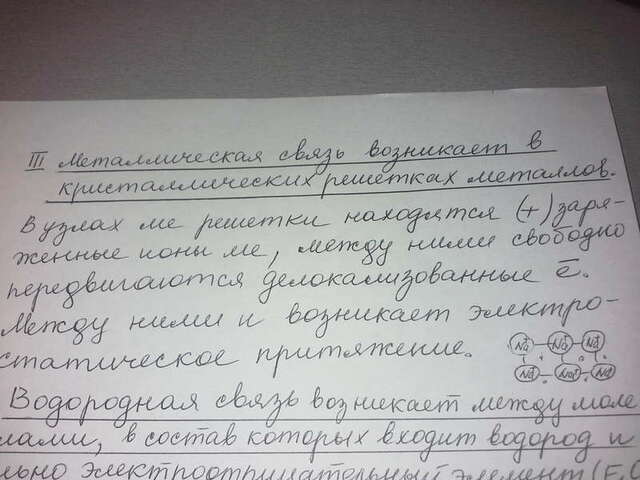 III Металлическая связь возникает в
кристаллических решетках металлов.
В узлах ме решетки находятся (+) заря-
женные ионы ме, между ними свободно
передвигаются делокализованные ē.
Между ними и возникает электро-
статическое притяжение.
Na Na Na
Na Na Na
Водородная связь возникает между моле
лами, в состав которых входит водород и
льно электроотрицательный элемент (F,